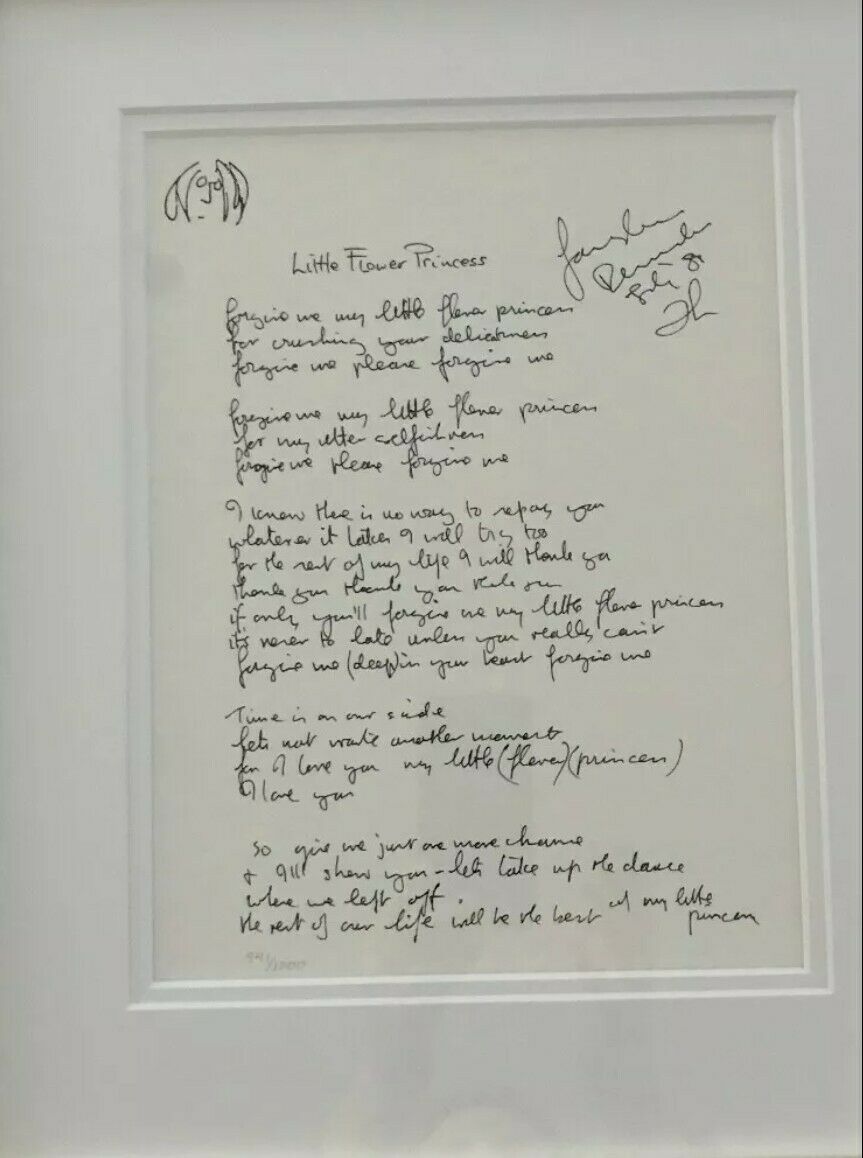 Little Flower Princess
forgive me my little flower princess
for crushing your delicateness
forgive me please forgive me
forgive me my little flower princess
for my utter selfishness
forgive me please forgive me
I know there is no way to repay you
whatever it takes I will try too
for the rest of my life I will thank you
thank you thank you thank you
if only you'll forgive me my little flower princess
it's never to late unless you really can't
forgive me (deep) in your heart forgive me
Time is on our side
lets not waste another moment
for I love you my little (flower) (princess)
I love you
so give me just one more chance
+ I'll show you - lets take up the dance
where we left off.
the rest of our life will be the best my little
princess
/1000